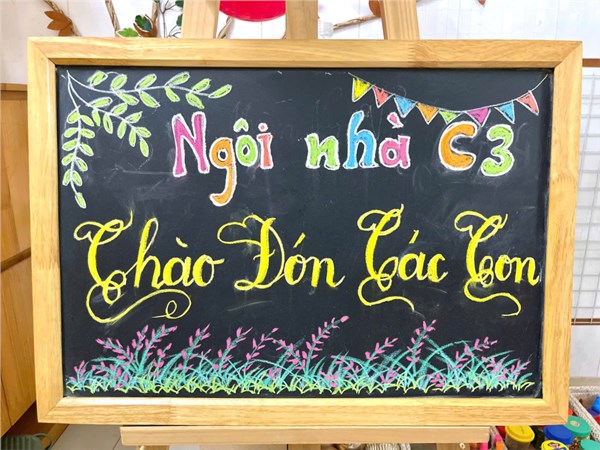 Ngôi nhà C3
Chào Đón Các Con